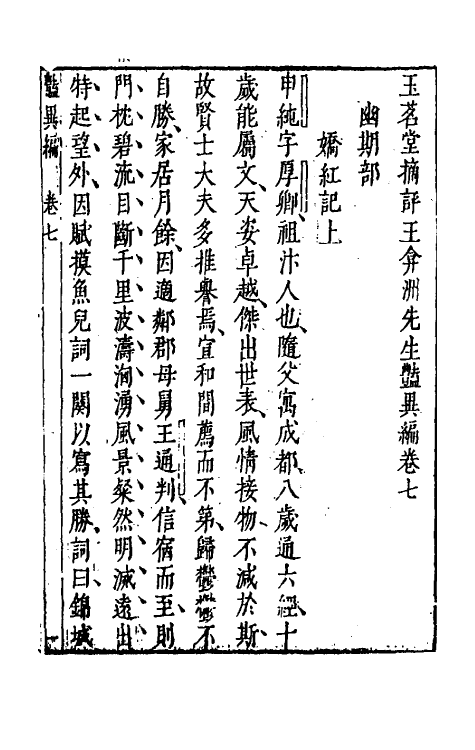 玉茗堂摘評王弇洲先生豔異編卷七
幽期部
嬌紅記上
申純字厚卿祖汴人也隨父寓成都八歲通六經十
歲能屬文天姿卓越傑出世表風情接物不減於斯
故賢士大夫多推譽焉宜和間薦而不第歸鬱鬱不
自勝家居月餘因適鄰郡母舅王通判信宿而至則
門枕碧流目斷千里波濤洶湧風景粲然明滅遠出
特起望外因賦摸魚兒詞一闋以寫其勝詞曰錦城
豔異編 卷七 一